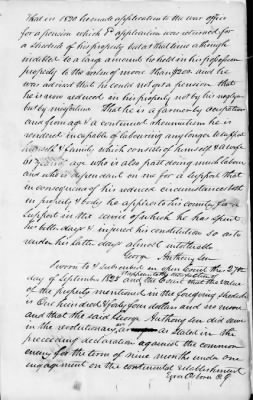 That in 1820 he made application to the war office
for a pension which sd application was returned for
a schedule of his property but at that time although
indebted to a large amount he held in his possession
property to the value of more than $200 and he
was advised that he could not get a pension that
he is now reduced in his property not by his neglect
but by misfortune That he is a farmer by occupation
and from age & a continual rheumatism he is
rendered incapable of labouring any longer to support
himself & family which consists of himself & a wife
61 years age who is also past doing much labour
and who is dependant on me for a support that
in consequence of his reduced circumstances both
in property & body he applies to his country for a
support in the service of which he has spent
his better days & injured his constitution so as to
render his latter days almost intolerable
George Anthony sen
Sworn to & subscribed in open Court the 27th
day of September 1825 and the Court that the value
of the property mentioned in the foregoing schedule
is One hundred & forty four dollars and no more
and that the said George Anthony sen did serve
in the revolutionary as stated in the
preceding declaration against the common
enemy for the term of nine months under one
engagement on the continental establishment
Ezra Osborn